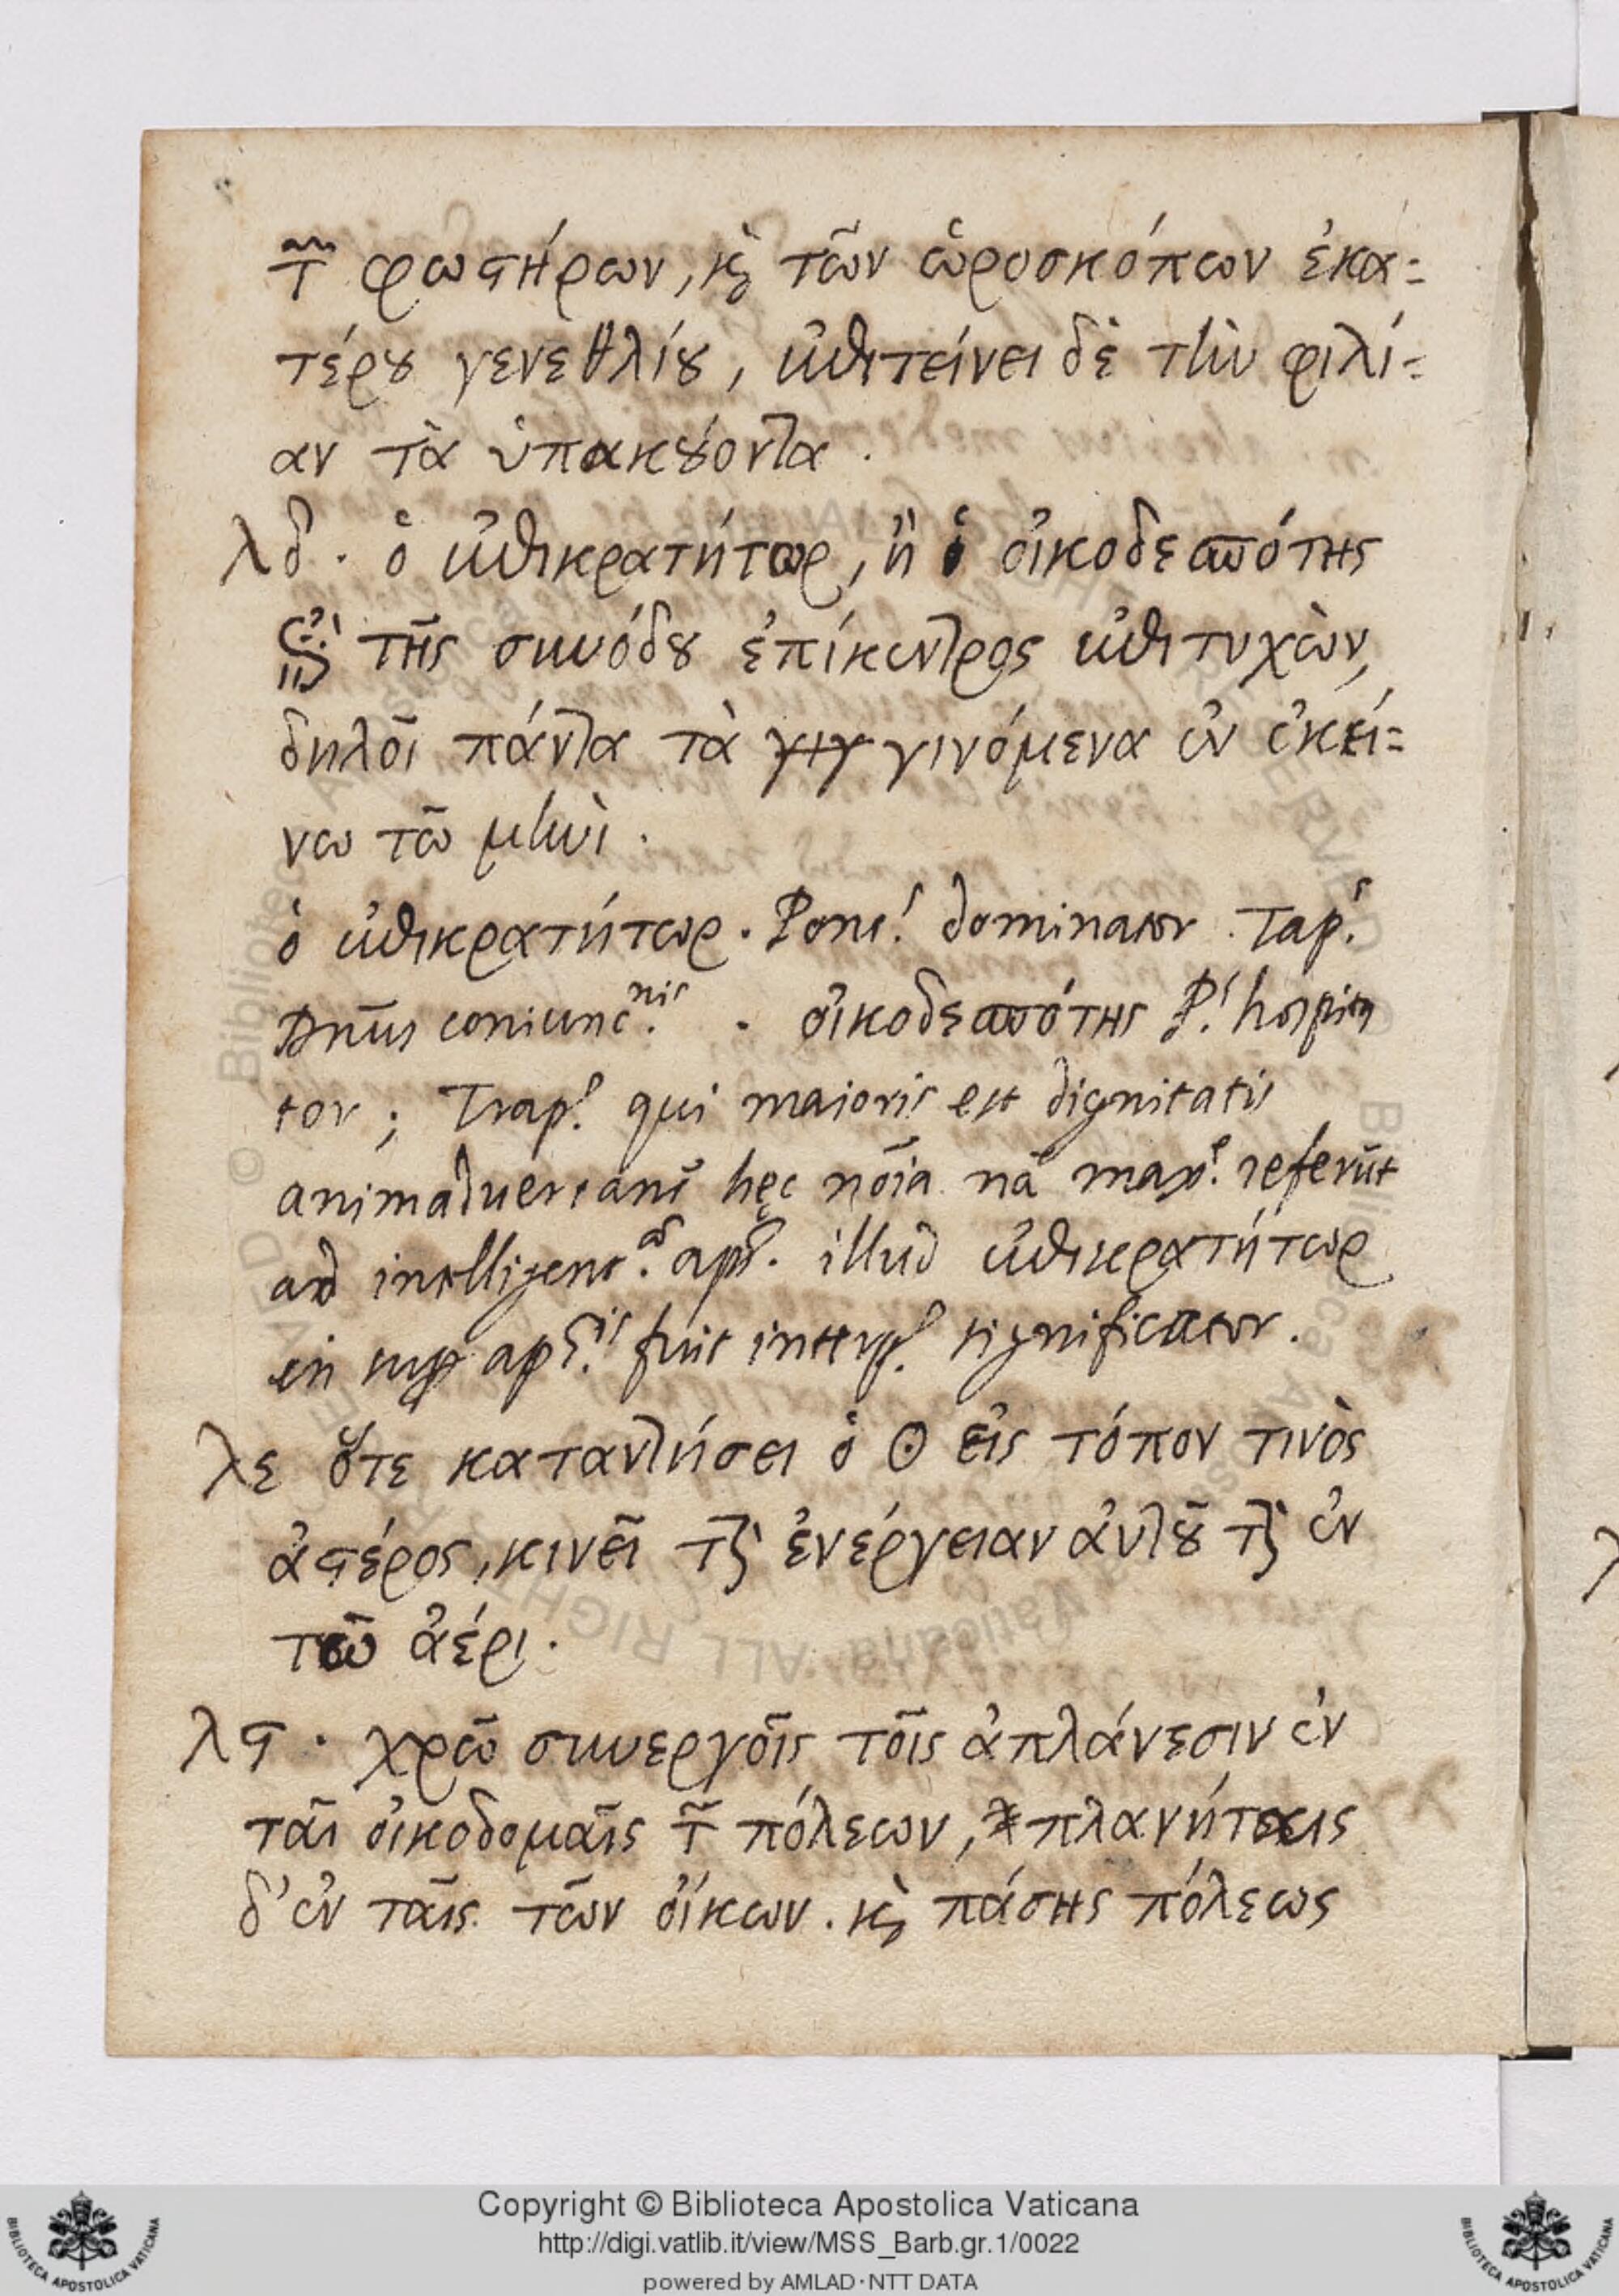 τῶν φωστήρων, καὶ τῶν ὡροσκόπων ἑκα-
τέρου γενεθλίου, ἐπιτείνει δὲ τὴν φιλί-
αν τὰ ὑπακούοντα.
λδ. ὁ ἐπικρατήτωρ, ἢ ὁ οἰκοδεσπότης
τῆς συνόδου ἐπίκεντρος ἐπιτυχὼν,
δηλοῖ πάντα τὰ γιγ γινόμενα ἐν ἐκεί-
νω τῶ μηνὶ.
ὁ ἐπικρατήτωρ. Pont. dominator. Tap.
Dnus coniunc.nis. οἰκοδεσπότης P. hospita
tor; Trap. qui maioris est dignitatis
animaduert hęc nōia nā max.e referūt
ad intelligent. illud ἐπικρατήτωρ
fuit interp. significator.
λε ὅτε καταντήσει ὁ ☉ εἰς τόπον τινὸς
ἀστέρος, κινεῖ τὴν ἐνέργειαν αὐτοῦ τὴν ἐν
τῶ ἀέρι.
λϛ. χρῶ συνεργοῖς τοῖς ἀπλάνεσιν ἐν
ταῖ οἰκοδομαῖς τῶν πόλεων, πλανήταις
δ' ἐν ταῖς τῶν οἴκων. καὶ πάσης πόλεως
Copyright © Biblioteca Apostolica Vaticana
http://digi.vatlib.it/view/MSS_Barb.gr.1/0022
powered by AMLAD·NTT DATA